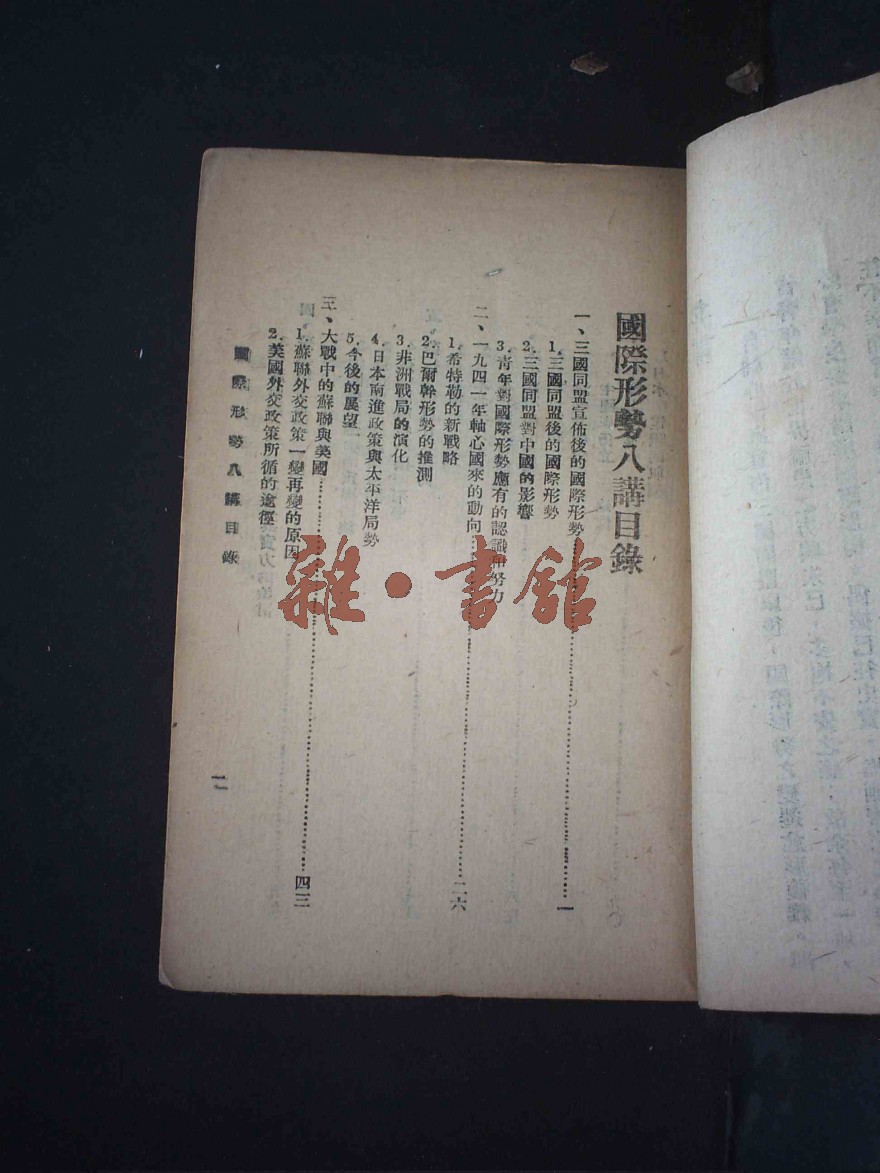 國際形勢八講目錄
一、三國同盟宣佈後的國際形勢……一
1.三國同盟後的國際形勢
2.三國同盟對中國的影響
3.青年對國際形勢應有的認識和努力
二、一九四一年軸心國來的動向……二六
1.希特勒的新戰略
2.巴爾幹形勢的推測
3.非洲戰局的演化
4.日本南進政策與太平洋局勢
5.今後的展望
三、大戰中的蘇聯與美國……四三
1.蘇聯外交政策一變再變的原因
2.美國外交政策所循的途徑
國際形勢八講目錄
雜·書館